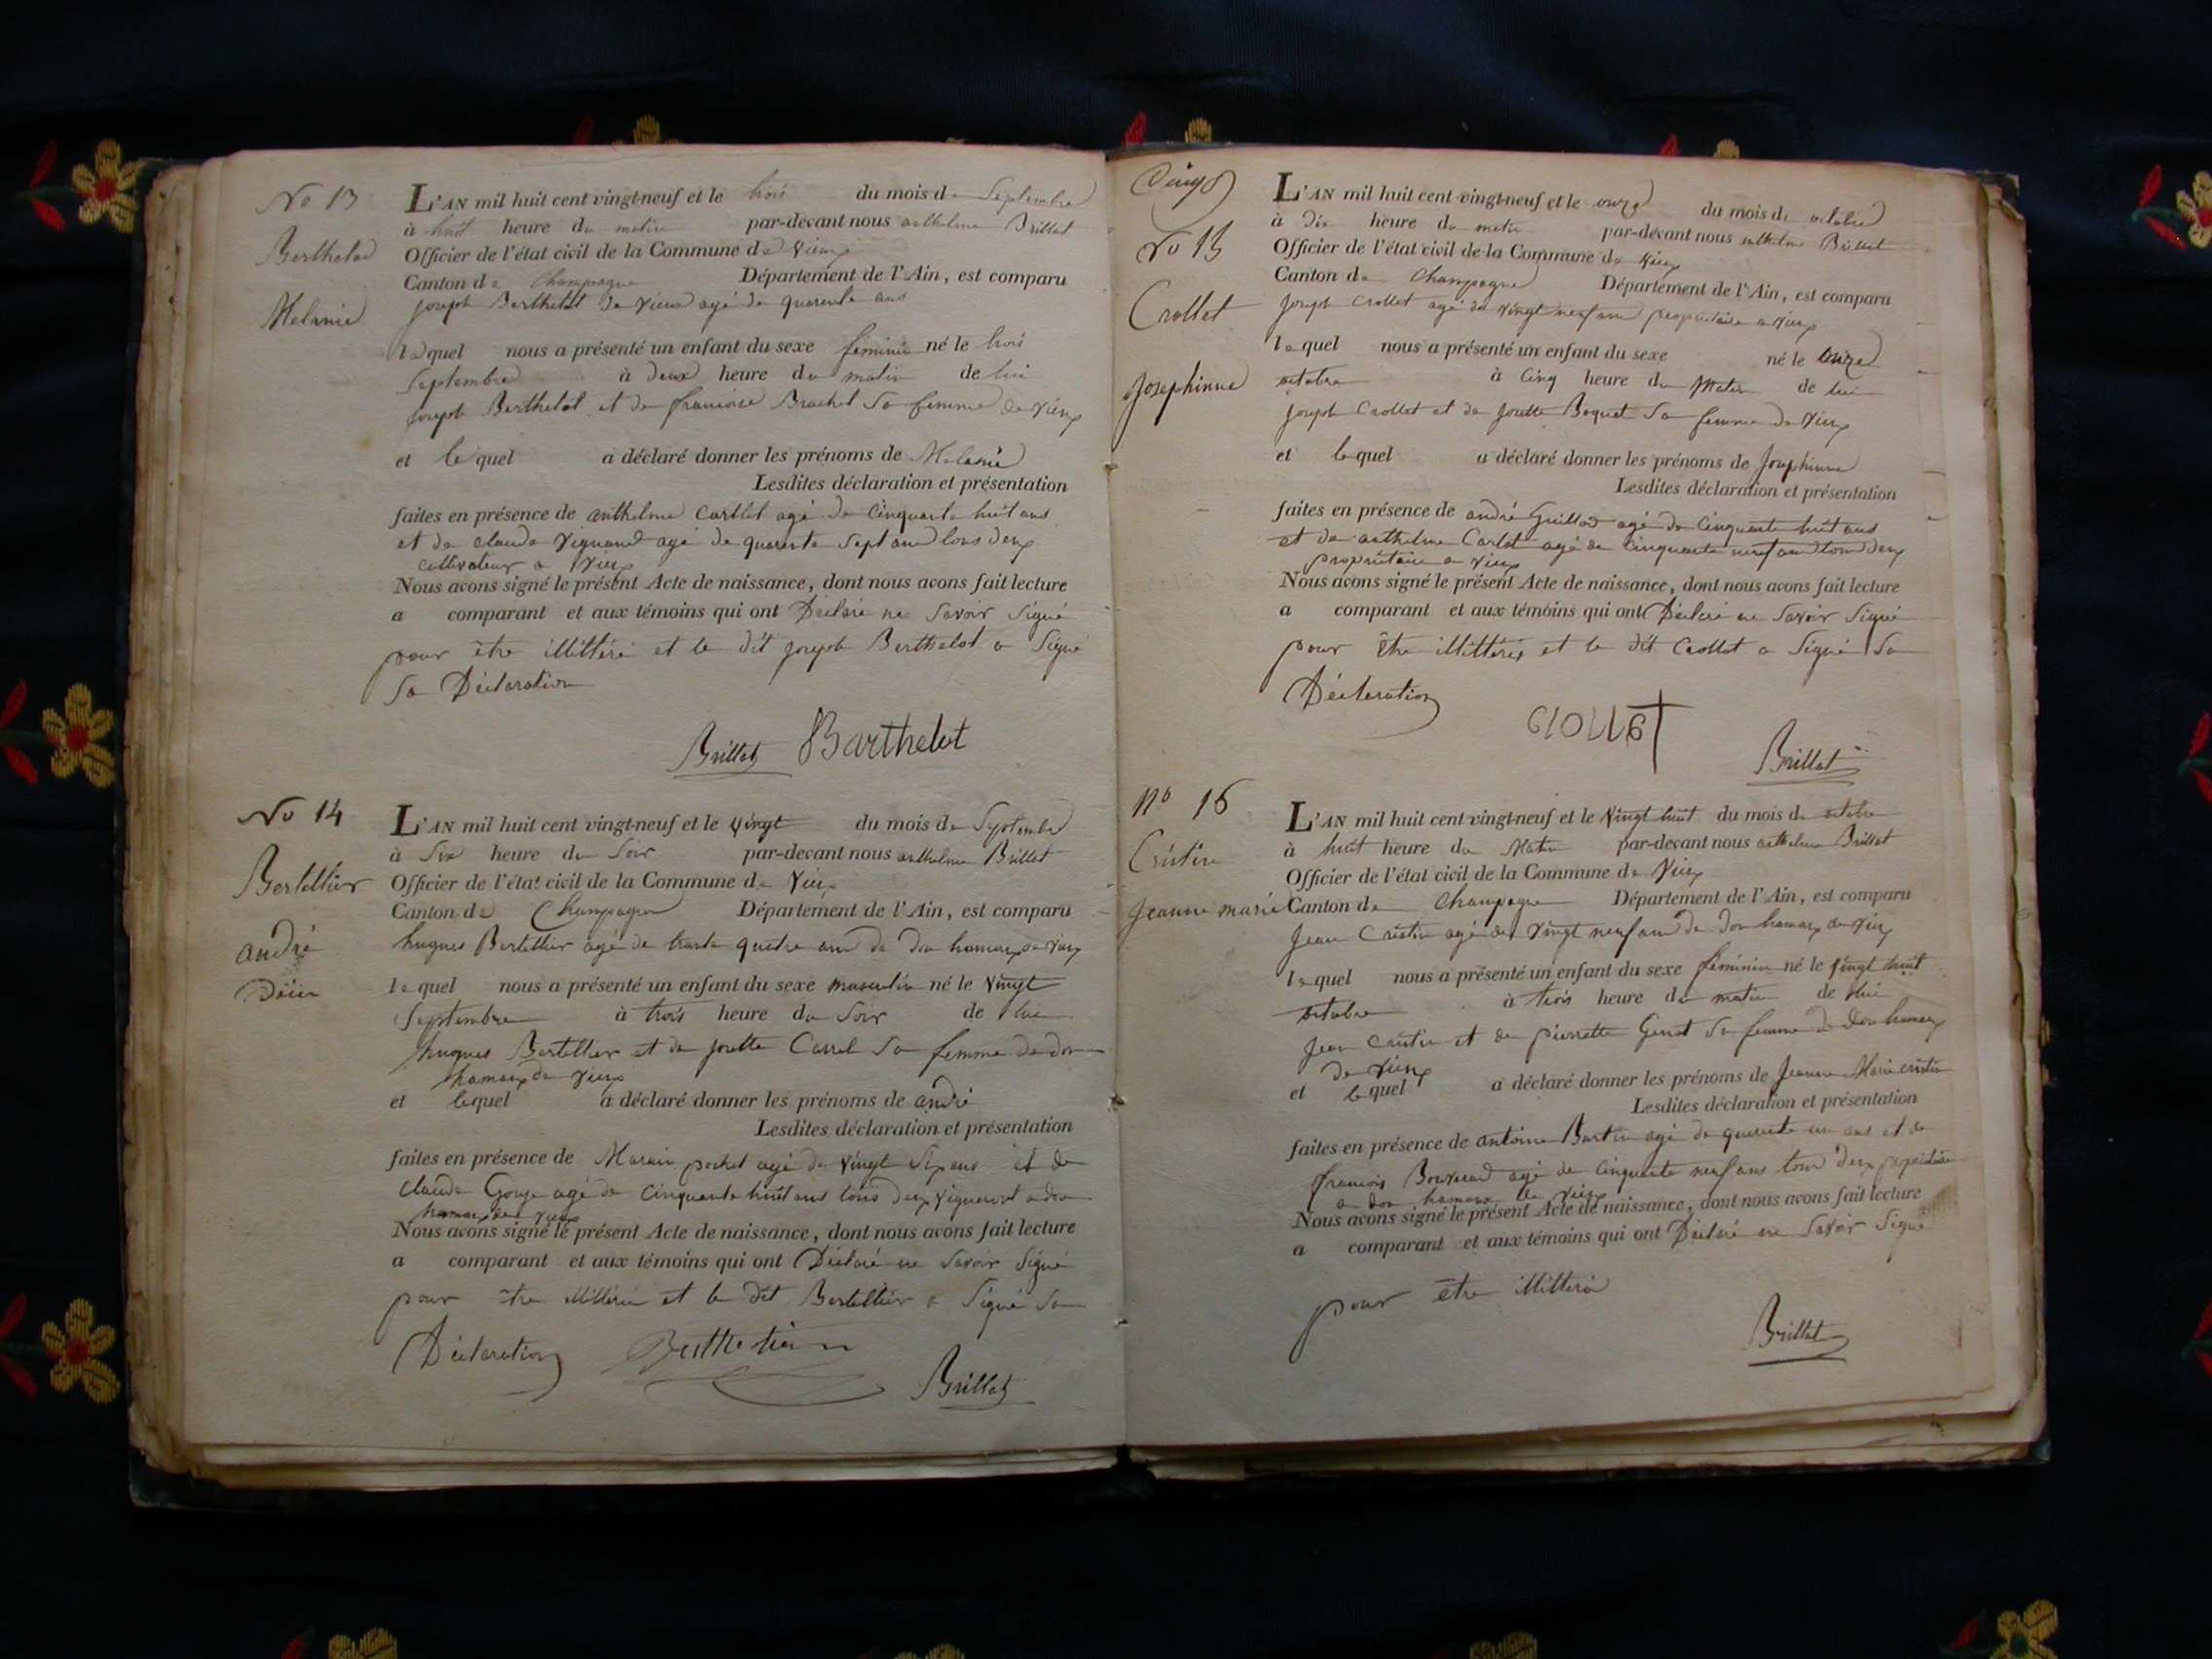 No 13
Berthelod
Melanie
L'AN mil huit cent vingt-neuf et le trois du mois de Septembre
à huit heure du matin par-devant nous anthelme Brillat
Officier de l'état civil de la Commune de Vieux
Canton de Champagne Département de l'Ain, est comparu
joseph Berthelot de vieux agé de quarente ans
lequel nous a présenté un enfant du sexe feminin né le trois
Septembre à deux heure du matin de lui
joseph Berthelot et de francoise Brachet Sa femme de Vieux
et lequel a déclaré donner les prénoms de Melanie
Lesdites déclaration et présentation
faites en présence de anthelme Carllet agé de Cinquante huit ans
et de claude Vignand agé de quarente Sept ans tous deux
cultivateur a Vieux
Nous avons signé le présent Acte de naissance, dont nous avons fait lecture
a comparant et aux témoins qui ont Déclaré ne Savoir Signé
pour être illittéré et le dit joseph Berthelot a Signé
Sa Déclaration
Brillat Barthelot
No 14
Bertellier
andré
L'AN mil huit cent vingt-neuf et le vingt du mois de Septembre
à Six heure du Soir par-devant nous anthelme Brillat
Officier de l'état civil de la Commune de Vieux
Canton de Champagne Département de l'Ain, est comparu
hugues Bertellier agé de trante quatre ans de don hameaux de Vieux
lequel nous a présenté un enfant du sexe masculin né le Vingt
Septembre à trois heure du Soir de lui
hugues Bertellier et de josette Carrel Sa femme de don
hamaux de Vieux
et lequel a déclaré donner les prénoms de andré
Lesdites déclaration et présentation
faites en présence de Marin pochet agé de Vingt Six ans et de
Claude Gouje agé de Cinquante huit ans tous deux Vigneront a don
hamaux de Vieux
Nous avons signé le présent Acte de naissance, dont nous avons fait lecture
a comparant et aux témoins qui ont Déclaré ne Savoir Signé
pour être illittéré et le dit Bertellier a Signé Sa
Déclaration
Brillat
No 15
Crollet
Josephinne
L'AN mil huit cent vingt-neuf et le onze du mois de octobre
à Dix heure du matin par-devant nous anthelme Brillat
Officier de l'état civil de la Commune de Vieux
Canton de Champagne Département de l'Ain, est comparu
Joseph Crollet agé de vingt neuf ans propriétaire a vieux
lequel nous a présenté un enfant du sexe né le onze
octobre à Cinq heure du Matin de lui
joseph Crollet et de josette Boquet Sa femme de Vieux
et lequel a déclaré donner les prénoms de Josephinne
Lesdites déclaration et présentation
faites en présence de andré Guillod agé de Cinquante huit ans
et de anthelme Carlet agé de Cinquante neuf ans tous deux
propriétaire a vieux
Nous avons signé le présent Acte de naissance, dont nous avons fait lecture
a comparant et aux témoins qui ont Déclaré ne Savoir Signé
pour être illittérés et le dit Crollet a Signé Sa
Déclaration
Brillat
No 16
Cristin
Jeanne marie
L'AN mil huit cent vingt-neuf et le Vingt huit du mois de octobre
à huit heure du Matin par-devant nous anthelme Brillat
Officier de l'état civil de la Commune de Vieux
Canton de Champagne Département de l'Ain, est comparu
Jean Cristin agé de Vingt neuf ans de don hamaux de Vieux
lequel nous a présenté un enfant du sexe féminin né le Vingt huit
octobre à trois heure du matin de lui
Jean Cristin et de pierrette Genet Sa femme de don hamaux
de Vieux
et lequel a déclaré donner les prénoms de Jeanne Marie cristin
Lesdites déclaration et présentation
faites en présence de antoine Burtin agé de quarente un ans et de
francois agé de Cinquante neuf ans tous deux propriétaire
a don hamaux de Vieux
Nous avons signé le présent Acte de naissance, dont nous avons fait lecture
a comparant et aux témoins qui ont Déclaré ne Savoir Signé
pour être illittéré
Brillat